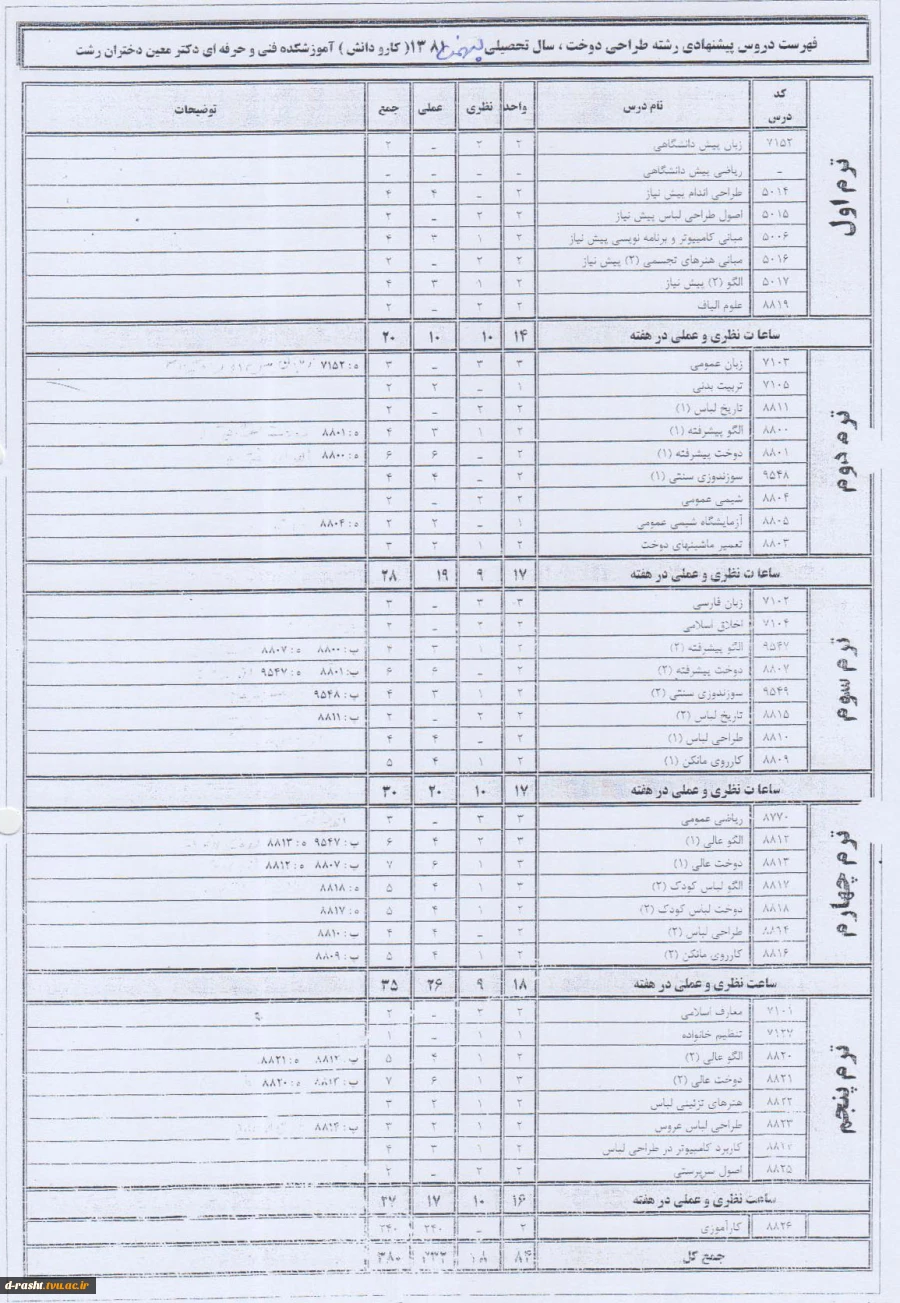 فهرست دروس پیشنهادی رشته طراحی دوخت ، سال تحصیلی ۱۳۸۱( کارو دانش ) آموزشکده فنی و حرفه ای دکتر معین دختران رشت
کد درس نام درس واحد نظری عملی جمع توضیحات
ترم اول
۷۱۵۲ زبان پیش دانشگاهی ۲ ۲ _ ۲
_ ریاضی پیش دانشگاهی _ _ _ _
۵۰۱۴ طراحی اندام پیش نیاز ۲ _ ۴ ۴
۵۰۱۵ اصول طراحی لباس پیش نیاز ۲ ۲ _ ۲
۵۰۰۶ مبانی کامپیوتر و برنامه نویسی پیش نیاز ۲ ۱ ۳ ۴
۵۰۱۶ مبانی هنرهای تجسمی (۲) پیش نیاز ۲ ۲ _ ۲
۵۰۱۷ الگو (۲) پیش نیاز ۲ ۱ ۳ ۴
۸۸۱۹ علوم الیاف ۲ ۲ _ ۲
ساعات نظری و عملی در هفته ۱۴ ۱۰ ۱۰ ۲۰
ترم دوم
۷۱۰۳ زبان عمومی ۳ ۳ _ ۳ ه : ۷۱۵۲
۷۱۰۵ تربیت بدنی ۱ _ ۲ ۲
۸۸۱۱ تاریخ لباس (۱) ۲ ۲ _ ۲
۸۸۰۰ الگو پیشرفته (۱) ۲ ۱ ۳ ۴ ه : ۸۸۰۱
۸۸۰۱ دوخت پیشرفته (۱) ۲ _ ۶ ۶ ه : ۸۸۰۰
۹۵۴۸ سوزندوزی سنتی (۱) ۲ _ ۴ ۴
۸۸۰۴ شیمی عمومی ۲ ۲ _ ۲
۸۸۰۵ آزمایشگاه شیمی عمومی ۱ _ ۲ ۲ ه : ۸۸۰۴
۸۸۰۳ تعمیر ماشینهای دوخت ۲ ۱ ۲ ۳
ساعات نظری و عملی در هفته ۱۷ ۹ ۱۹ ۲۸
ترم سوم
۷۱۰۲ زبان فارسی ۳ ۳ _ ۳
۷۱۰۴ اخلاق اسلامی ۲ ۲ _ ۲
۹۵۴۷ الگو پیشرفته (۲) ۲ ۱ ۳ ۴ ب : ۸۸۰۰ ه : ۸۸۰۷
۸۸۰۷ دوخت پیشرفته (۲) ۲ _ ۶ ۶ ب: ۸۸۰۱ ه : ۹۵۴۷
۹۵۴۹ سوزندوزی سنتی (۲) ۲ ۱ ۳ ۴ ب : ۹۵۴۸
۸۸۱۵ تاریخ لباس (۲) ۲ ۲ _ ۲ ب : ۸۸۱۱
۸۸۱۰ طراحی لباس (۱) ۲ _ ۴ ۴
۸۸۰۹ کارروی مانکن (۱) ۲ ۱ ۴ ۵
ساعات نظری و عملی در هفته ۱۷ ۱۰ ۲۰ ۳۰
ترم چهارم
۸۷۷۰ ریاضی عمومی ۳ ۳ _ ۳
۸۸۱۲ الگو عالی (۱) ۳ ۲ ۴ ۶ ب : ۹۵۴۷ ه : ۸۸۱۳
۸۸۱۳ دوخت عالی (۱) ۳ ۱ ۶ ۷ ب : ۸۸۰۷ ه : ۸۸۱۲
۸۸۱۷ الگو لباس کودک (۲) ۳ ۱ ۴ ۵ ه : ۸۸۱۸
۸۸۱۸ دوخت لباس کودک (۲) ۲ ۱ ۴ ۵ ه : ۸۸۱۷
۸۸۱۴ طراحی لباس (۲) ۲ _ ۴ ۴ ب : ۸۸۱۰
۸۸۱۶ کارروی مانکن (۲) ۲ ۱ ۴ ۵ ب : ۸۸۰۹
ساعت نظری و عملی در هفته ۱۸ ۹ ۲۶ ۳۵
ترم پنجم
۷۱۰۱ معارف اسلامی ۲ ۲ _ ۲
۷۱۲۷ تنظیم خانواده ۱ ۱ _ ۱
۸۸۲۰ الگو عالی (۲) ۲ ۱ ۴ ۵ ب : ۸۸۱۲ ه : ۸۸۲۱
۸۸۲۱ دوخت عالی (۲) ۳ ۱ ۶ ۷ ب : ۸۸۱۳ ه : ۸۸۲۰
۸۸۲۲ هنرهای تزئینی لباس ۲ ۱ ۲ ۳
۸۸۲۳ طراحی لباس عروس ۲ ۱ ۲ ۳ ب : ۸۸۱۴
کاربرد کامپیوتر در طراحی لباس ۲ ۱ ۳ ۴
۸۸۲۵ اصول سرپرستی ۲ ۲ _ ۲
ساعت نظری و عملی در هفته ۱۶ ۱۰ ۱۷ ۲۷
۸۸۲۶ کارآموزی ۲ _ ۲۴۰ ۲۴۰
جمع کل ۸۴
d-rasht.tvu.ac.ir